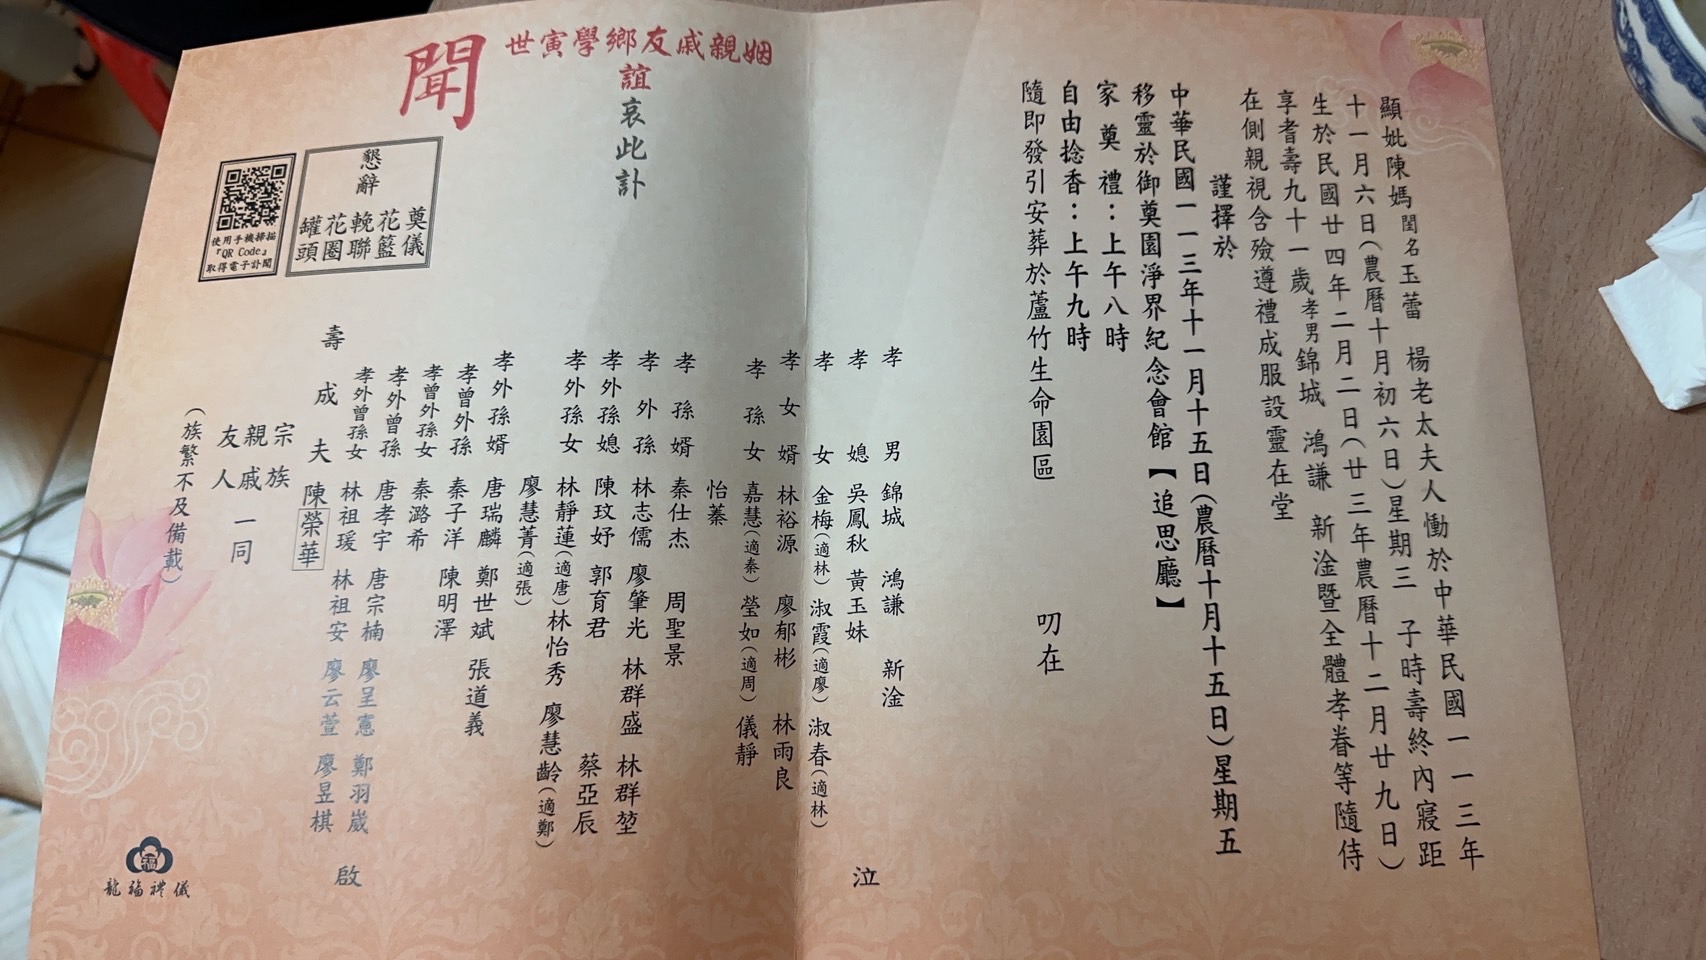 顯妣陳媽閨名玉蕾 楊老太夫人慟於中華民國一一三年
十一月六日(農曆十月初六日)星期三 子時壽終內寢距
生於民國廿四年二月二日(廿三年農曆十二月廿九日)
享耆壽九十一歲孝男錦城 鴻謙 新淦暨全體孝眷等隨侍
在側親視含殮遵禮成服設靈在堂
謹擇於
中華民國一一三年十一月十五日(農曆十月十五日)星期五
移靈於御奠園淨界紀念會館【追思廳】
家奠禮:上午八時
自由捻香:上午九時
隨即發引安葬於蘆竹生命園區
叨在
姻親戚友鄉學寅世
誼
哀此訃
聞
懇辭
奠儀
花籃
輓聯
花圈
罐頭
使用手機掃描
『QR Code』
取得電子訃聞
孝男 錦城 鴻謙 新淦
孝媳 吳鳳秋 黃玉妹
孝女 金梅(適林) 淑霞(適廖) 淑春(適林)
孝女婿 林裕源 廖郁彬 林雨良
孝孫女 嘉慧(適秦) 瑩如(適周) 儀靜
怡蓁
孝孫婿 秦仕杰 周聖景
孝外孫 林志儒 廖肇光 林群盛 林群堃
孝外孫媳 陳玟妤 郭育君 蔡亞辰
孝外孫女 林靜蓮(適唐) 林怡秀 廖慧齡(適鄭)
廖慧菁(適張)
孝外孫婿 唐瑞麟 鄭世斌 張道義
孝曾外孫 秦子洋 陳明澤
孝曾外孫女 秦潞希
孝外曾孫 唐孝宇 唐宗楠 廖呈憲 鄭羽崴
孝外曾孫女 林祖瑗 林祖安 廖云萱 廖昱棋
壽成夫 陳榮華
泣
啟
宗族
親戚
友人
一同
(族繁不及備載)
福
龍福禮儀